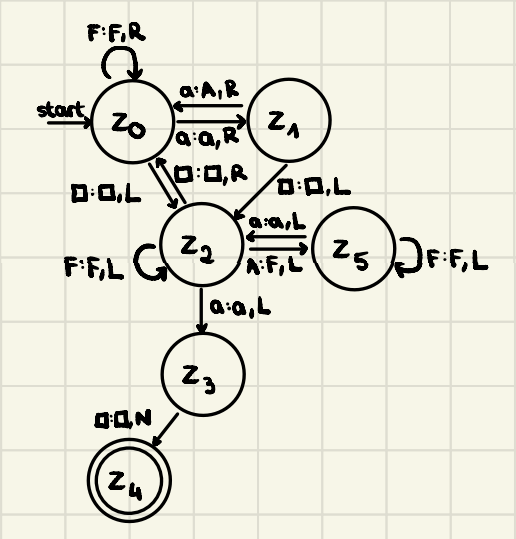 F:F,R
start
z0
a:A,R
a:a,R
z1
□:□,L
□:□,R
□:□,L
z2
a:a,L
A:F,L
z5
F:F,L
F:F,L
a:a,L
z3
□:□,N
z4